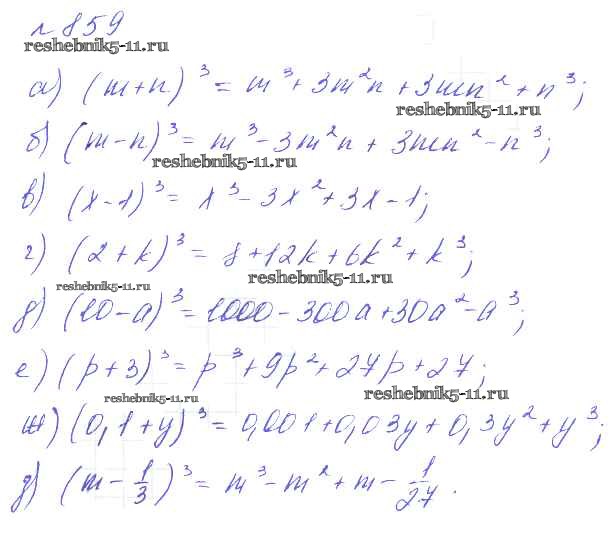 № 859
reshebnik5-11.ru
а) (m+n)³ = m³ + 3m²n + 3mn² + n³;
reshebnik5-11.ru
б) (m-n)³ = m³ - 3m²n + 3mn² - n³;
reshebnik5-11.ru
в) (x-1)³ = x³ - 3x² + 3x - 1;
г) (2+k)³ = 8 + 12k + 6k² + k³;
reshebnik5-11.ru
reshebnik5-11.ru
д) (10-a)³ = 1000 - 300a + 30a² - a³;
е) (p+3)³ = p³ + 9p² + 27p + 27;
reshebnik5-11.ru
reshebnik5-11.ru
ж) (0,1+y)³ = 0,001 + 0,03y + 0,3y² + y³;
з) (m - 1/3)³ = m³ - m² + m - 1/27.